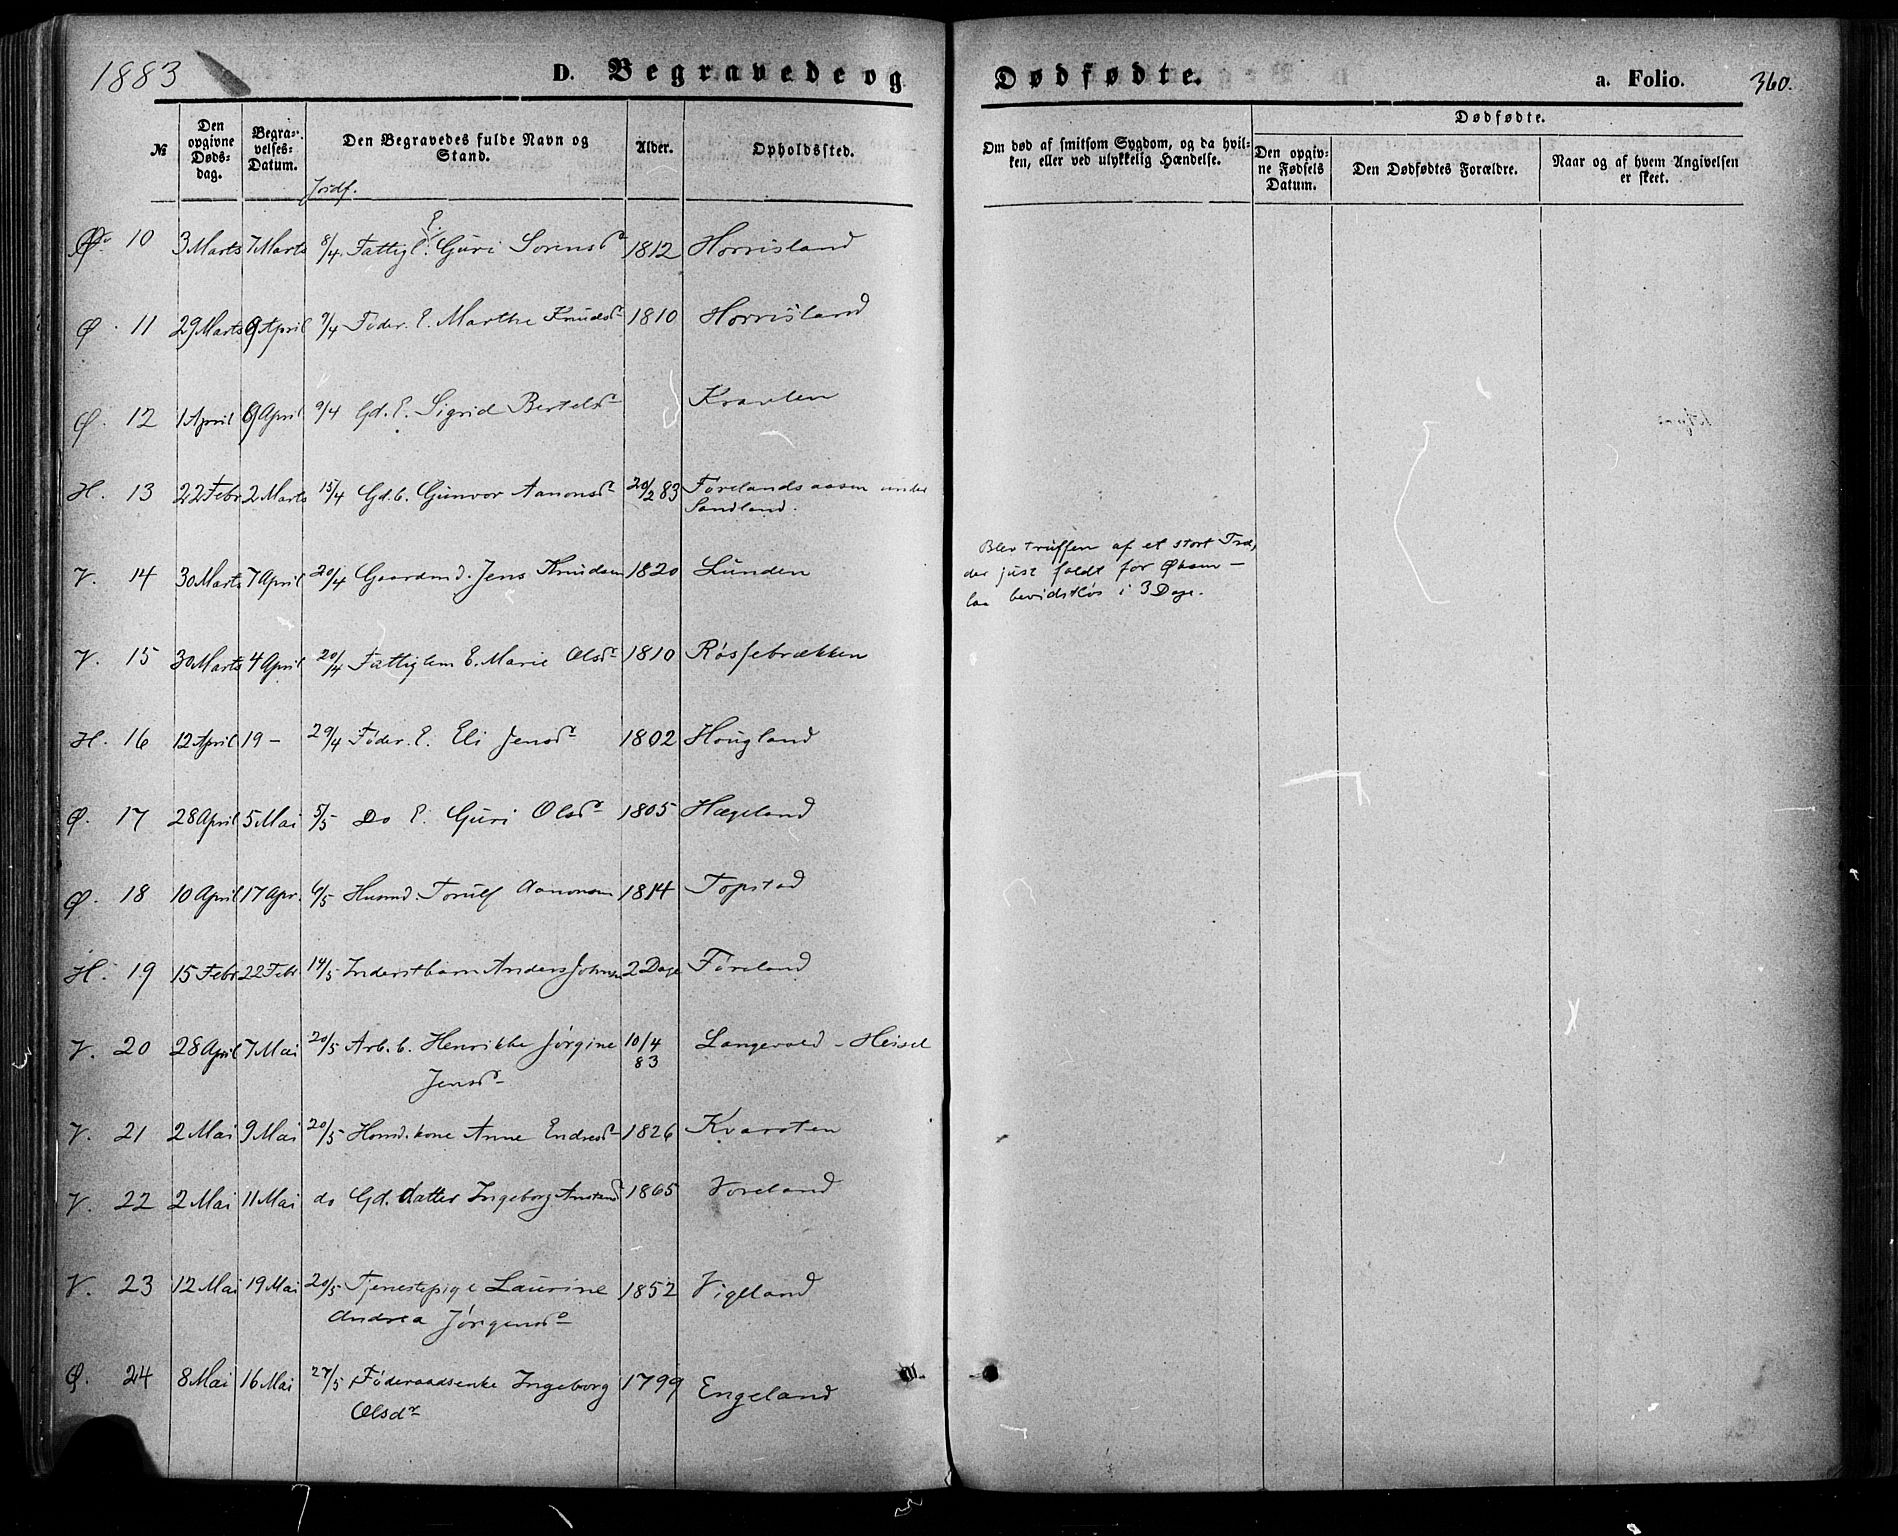 1883 D. Begravede og Dødfødte. a. Folio. 360.
№
Den opgivne Døds-dag.
Begra-velses-Datum.
Den Begravedes fulde Navn og Stand.
Jordf.
Alder.
Opholdssted.
Om død af smitsom Sygdom, og da hvil-ken, eller ved ulykkelig Hændelse.
Dødfødte.
Den opgiv-ne Fødsels Datum.
Den Dødfødtes Forældre.
Naar og af hvem Angivelsen er skeet.
Ø. 10 3 Marts 7 Marts 8/4 Fattigl. E. Guri Sorensdr 1812 Horrisland
Ø. 11 29 Marts 9 April 9/4 Føder. E. Marthe Knudsdr 1810 Horrisland
Ø. 12 1 April 9 April 9/4 Gd. E. Sigrid Bertelsdr
H. 13 22 Febr 2 Marts 15/4 Gd. b. Gunvor Aanonsdr 20/2 83 Førelandsaasen under
Sandland.
V. 14 30 Marts 7 April 20/4 Gaardmd. Jens Knudsen 1820 Lunden
Blev truffen af et stort Træ,
der just faldt for Øksen –
laa bevidstløs i 3 Dage.
V. 15 30 Marts 4 April 20/4 Fattiglem E. Marie Olsdr 1810 Røssebrækken
H. 16 12 April 19 – 29/4 Føder. E. Eli Jensdr 1802 Hougland
Ø. 17 28 April 5 Mai 5/5 Do E. Guri Olsdr 1805 Hægeland
Ø. 18 10 April 17 Apr. 6/5 Husmd. Torulf Aanonsen 1814 Topstad
H. 19 15 Febr 22 Febr 14/5 Inderstbarn Anders Johnsen 2 Dage Føreland
V. 20 28 April 7 Mai 20/5 Arb. b. Henrikke Jørgine 10/4 83 Langevold – Heisel
Jensdr
V. 21 2 Mai 9 Mai 20/5 Husmd. kone Anne Endresdr 1826 Kvarsten
V. 22 2 Mai 11 Mai do Gd. datter Ingeborg 1865
V. 23 12 Mai 19 Mai 20/5 Tjenestepige Laurine 1852 Vigeland
Andrea Jørgensdr
Ø. 24 8 Mai 16 Mai 27/5 Føderaadsenke Ingeborg 1799 Engeland
Olsdr